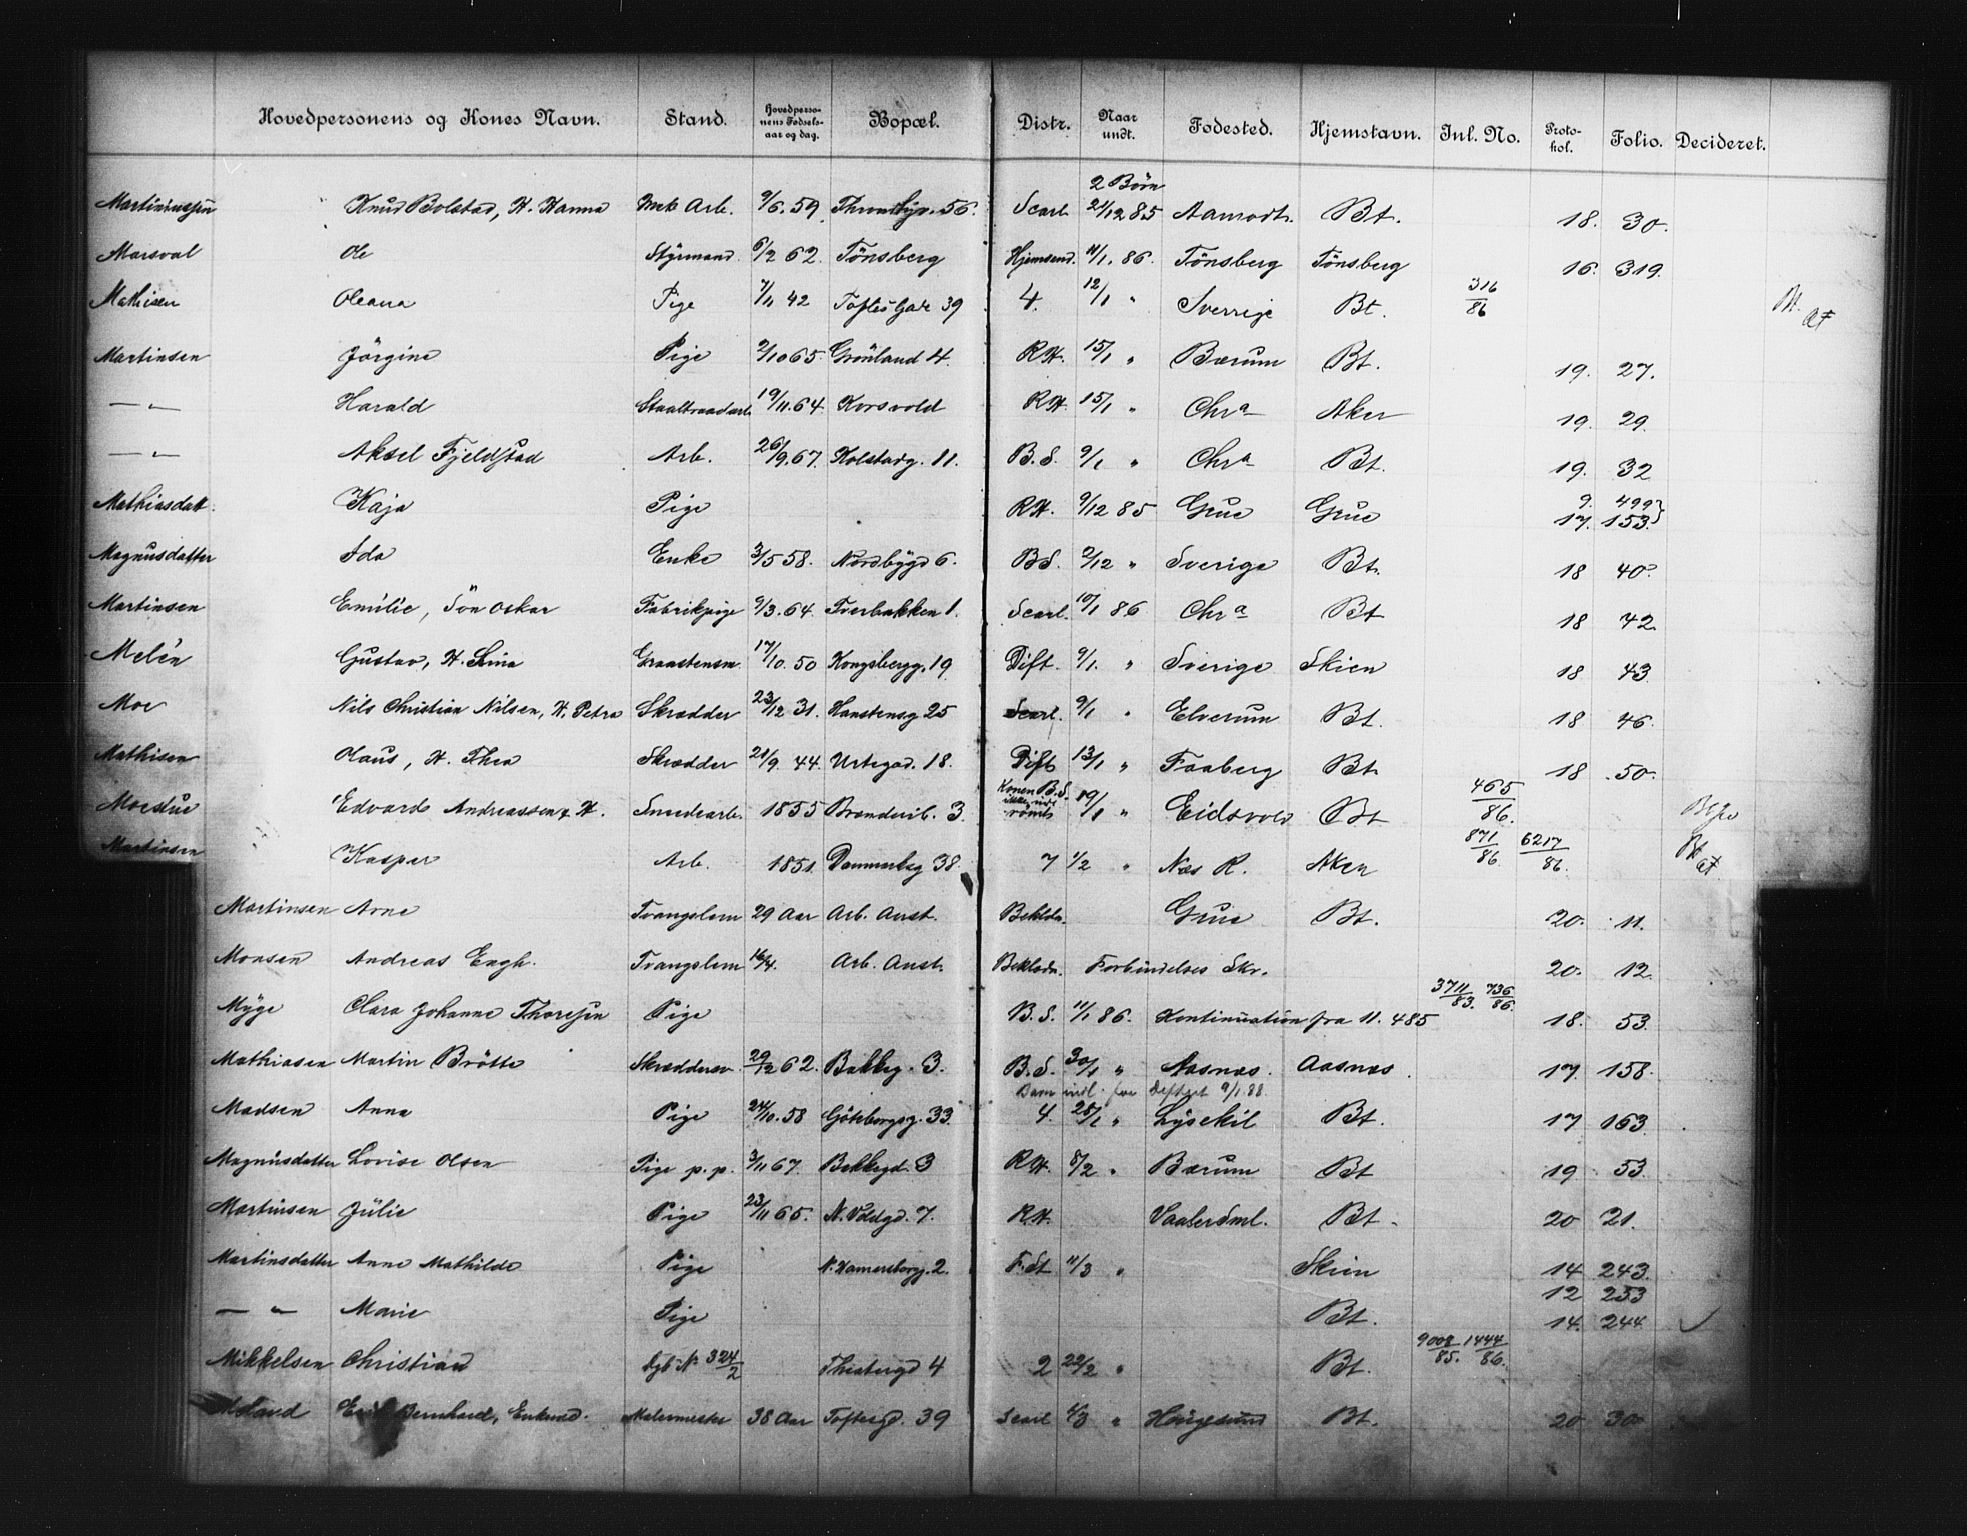 Hovedpersonens og Kones Navn. Stand. Hovedpersonens Fødselsaar og dag. Bopæl. Distr. Naar undt. Fødested. Hjemstavn. Jnl. No. Protokol. Folio. Decideret.
2 Børn
Martiniussen Knud Bolstad, H. Hanna Arb. 9/6. 59. 56. Scarl. 21/12 85 Aamodt. Bt. 18. 30.
Marsval Ole Styrmand 6/2 62. Tönsberg Hjemsend. 11/1. 86. Tönsberg Tönsberg 16. 319.
Mathisen Oleana Pige 7/11 42 Toftes Gade 39 4. 12/1 " Sverrige Bt. 316/86 Bt. at
Martinsen Jörgine Pige 2/10 65. Grönland 4. RH. 15/1 " Bærum Bt. 19. 27.
— " — Harald Staaltraadarb. 19/11. 64. Korsvold RH. 15/1 " Chra Aker 19. 29.
— " — Aksel Fjeldstad Arb. 26/9. 67. Holstadg. 11. B.S. 9/1 " Chra Bt. 19. 32
Mathiasdatt. Kaja Pige RH. 9/12 85 Grue Grue 9. 499}
17. 153}
Magnusdatter Ida Enke 3/5 58. Nordbygd 6. BS. 9/12 " Sverige Bt. 18 40.
Martinsen Emilie, Sön Oskar Fabrikpige 9/3. 64. Tverbakken 1. Scarl. 10/1 86 Chra Bt 18 42.
Melén Gustav, H. Lina Graastensm. 17/10. 50 Kongsbergg. 19 Dift. 9/1. " Sverige Skien 18 43.
Moe Nils Christian Nilsen, H. Petra Skrædder 23/12 31. Hanstensg 25 Scarl. 9/1 " Elverum Bt. 18 46.
Mathisen Olaus, H. Thea Skrædder 21/9. 44. Urtegad. 18. Dift 13/1 " Faaberg Bt. 18 50.
Moestue Edvard Andreassen & H. Smedearb. 1855 3. Konen B.S. 19/1 " Eidsvold Bt 465/86.
Martinsen Kasper Arb. 1851. Danmarksg 38. 7 1/2 " Næs R. Aker 871/86 6217/86. Bt at
Martinsen Arne Tvangslem 29 Aar Arb. Anst. Beklædn. Grue Bt. 20. 11.
Monsen Andreas Engh. Tvangslem 16/4. Arb. Anst. Beklædn. Forbindelses Skr. 20. 12.
Myge Clara Johanne Thoresen Pige B.S. 11/1 86. Kontinuation fra 11. 485 3711/83. 736/86. 18. 53.
Mathiasen Martin Brötte Skræddersv. 29/12 62. Bakkeg. 3. B.S. 30/1 " Aasnæs. Aasnæs. 17. 158.
Barn indl. fra Diftret 9/1. 88.
Madsen Anna Pige 24/10. 58 Göteborgsg. 33. 4. 25/1 " Lysekil Bt. 17 163
Magnusdatter Lovise Olsen Pige p.p. 3/11 67. Bakkegd. 3 RH. 8/2 " Bærum Bt 19 53.
Martinsen Jülie Pige 23/11 65. N. Voldgd. 7. RH. Vaaler Sml. Bt. 20 21.
Martinsdatter Anne Mathilde Pige N. Hamersborg. 2. F. St. 11/3 " Skien 14 243.
12 253
— " — Marie Pige Bt. 14. 244
Mikkelsen Christian Dgb. No. 324/2 Theatergd 4 2 22/2 " Bt. 9008/85. 1444/86.
Bernhard, Enkmd. Malermester 38 Aar Toftesgd. 39 Scarl 4/3 " Haugesund Bt. 20 30